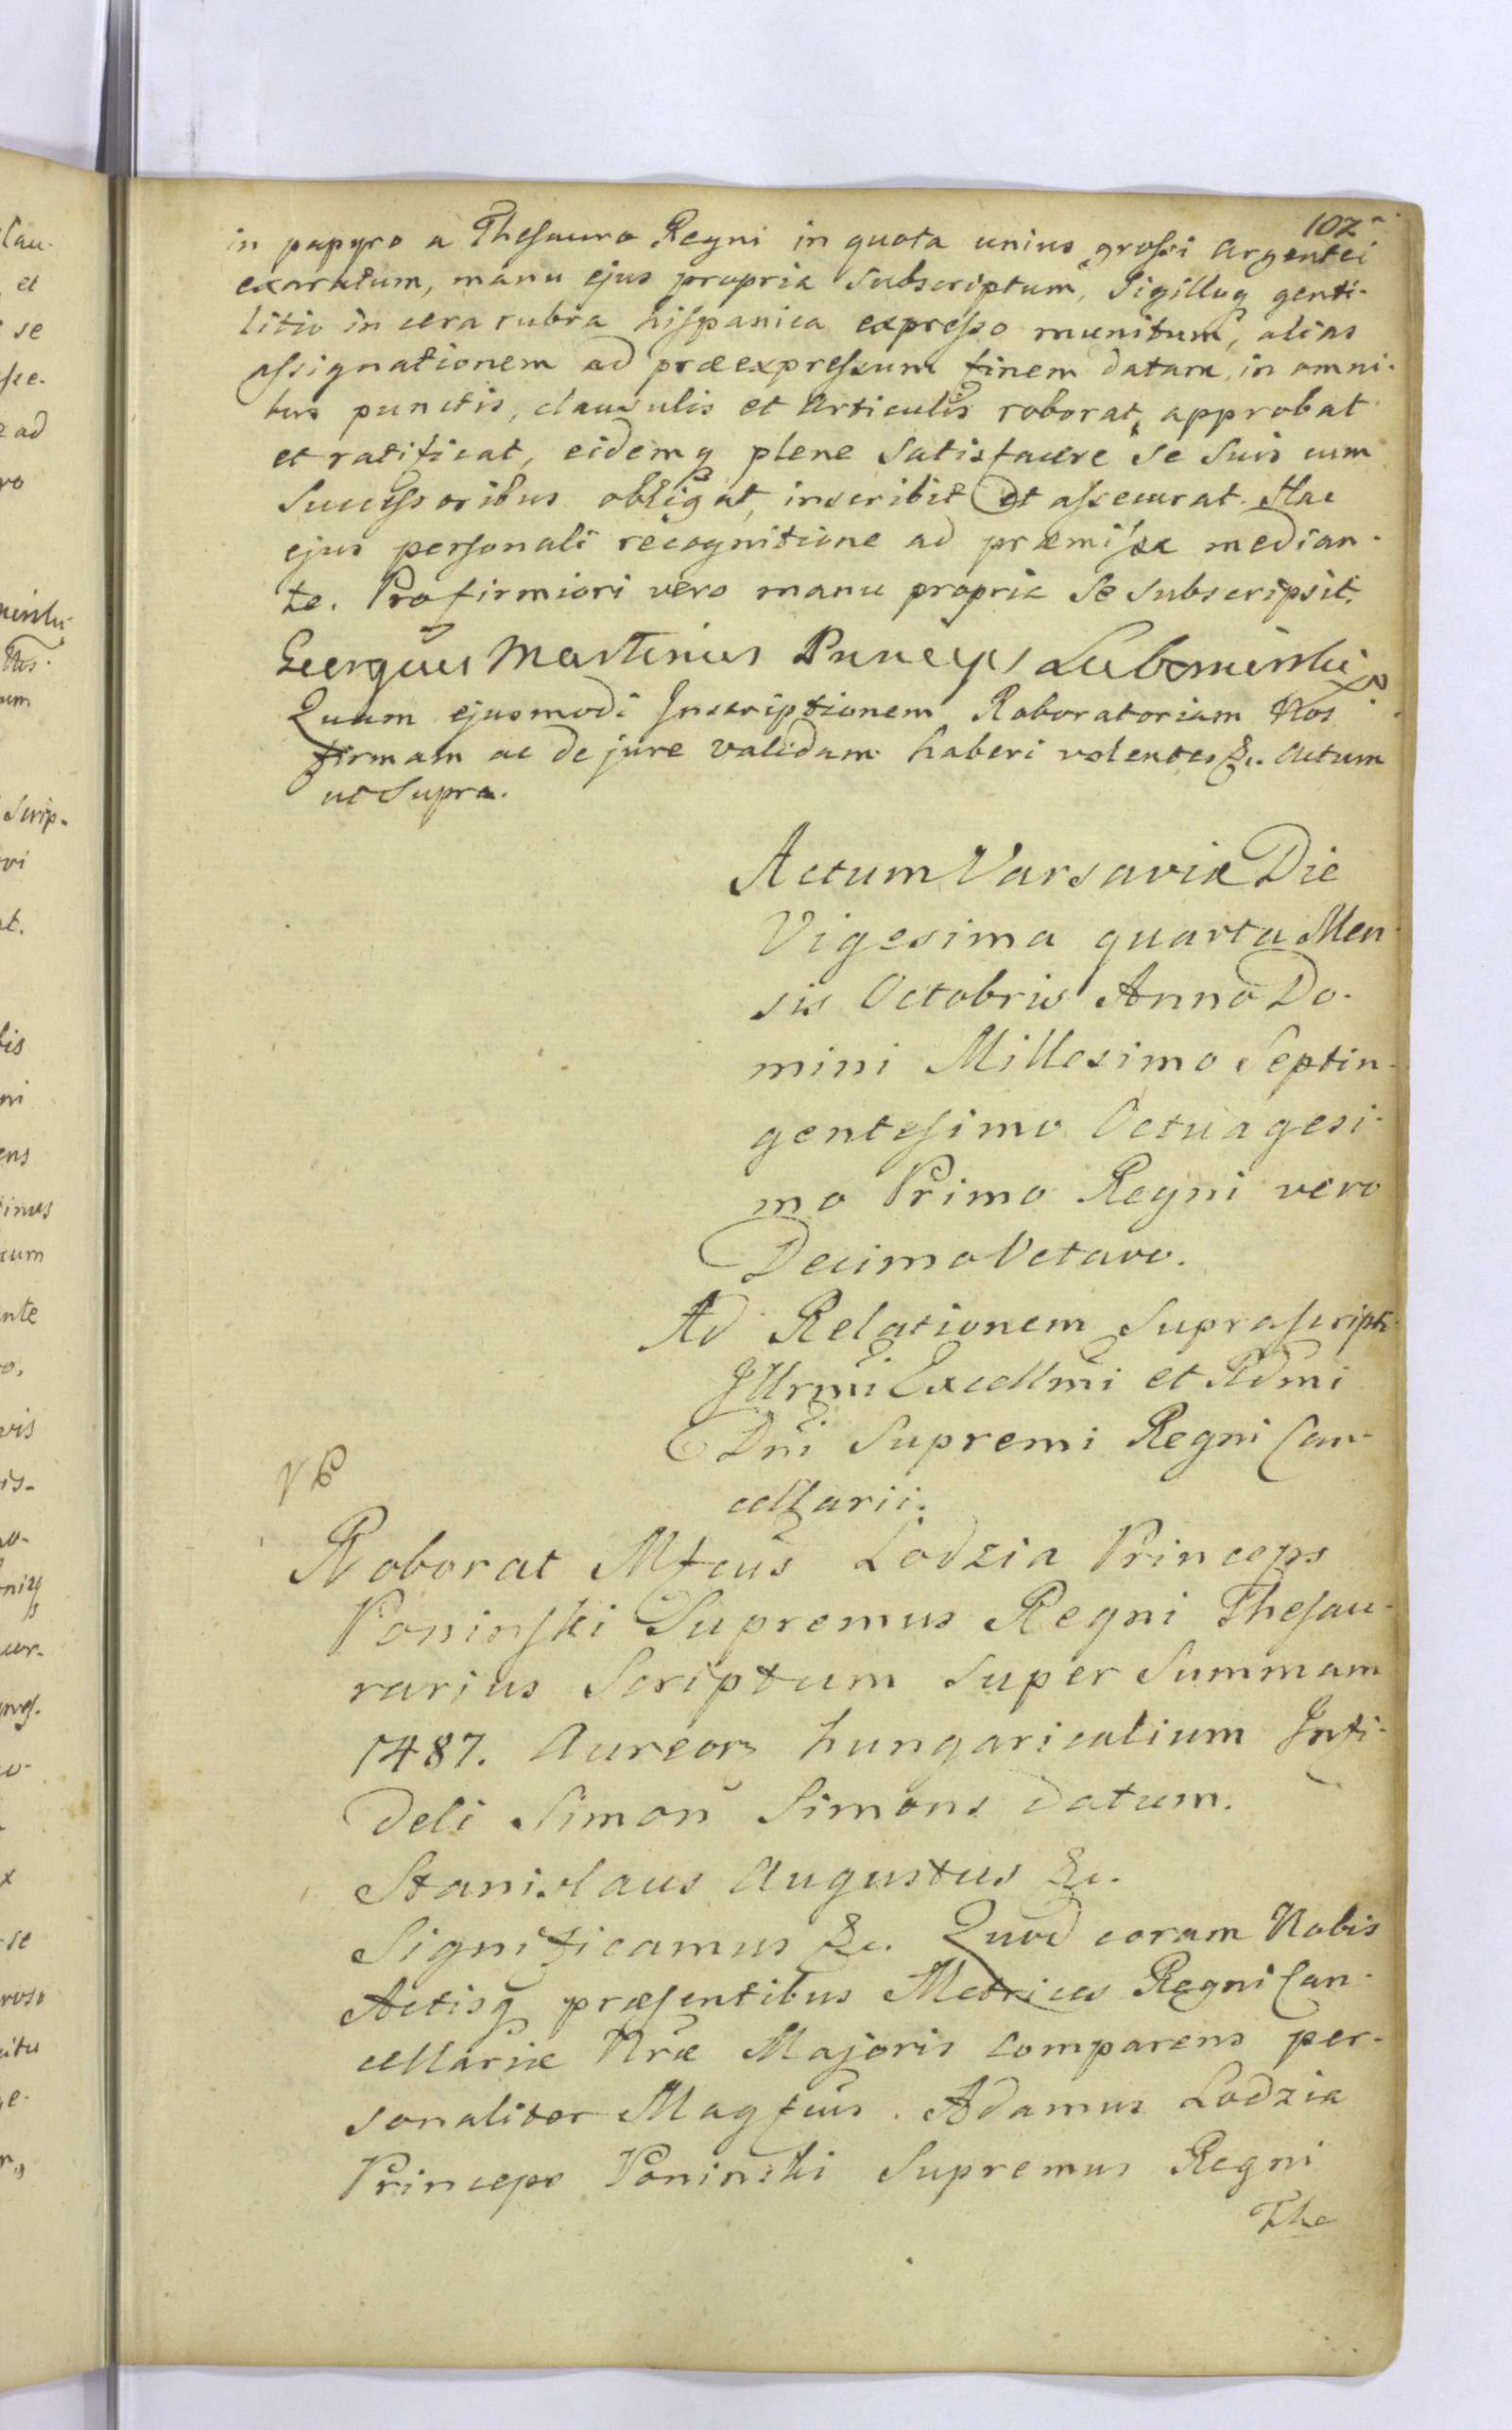 102
in papyro a Thesauro Regni in quota unius grossi argentei
exaratum, manu ejus propria subscriptum, Sigilloq genti-
litio in cera rubra hispanica expresso munitum, alias
assignationem ad præexpressum finem datam, in omni-
bus punctis, clausulis et articulis roborat, approbat
et ratificat, eidemq plene satisfacere se suis cum
Successoribus obligat, inscribit et assecurat. Hac
ejus personali recognitione ad præmissa median-
te. Pro firmiori vero manu propria se subscripsit.
Georgius Martinus Princeps Lubomirski
Quam ejusmodi Inscriptionem Roboratoriam Nos
firmam ac de jure validam haberi volentes &c. Actum
ut Supra.
Actum Varsaviæ Die
Vigesima quarta Men-
sis Octobris Anno Do-
mini Millesimo Septin-
gentesimo Octuagesi-
mo Primo Regni vero
Decimo Octavo.
Ad Relationem suprascripti
Illrmi Excellmi et Rdmi
Dni Supremi Regni Can-
cellarii.
Roborat Mfcus Lodzia Princeps
Poninski Supremus Regni Thesau-
rarius Scriptum super Summam
1487. Aureor hungaricalium Infi-
deli Simon Simons datum.
Stanislaus Augustus &c.
Significamus &c. Quod coram Nobis
Actisq præsentibus Metrices Regni Can-
cellariæ Nræ Majoris comparens per-
sonaliter Magfcus Adamus Lodzia
Princeps Poninski Supremus Regni
The